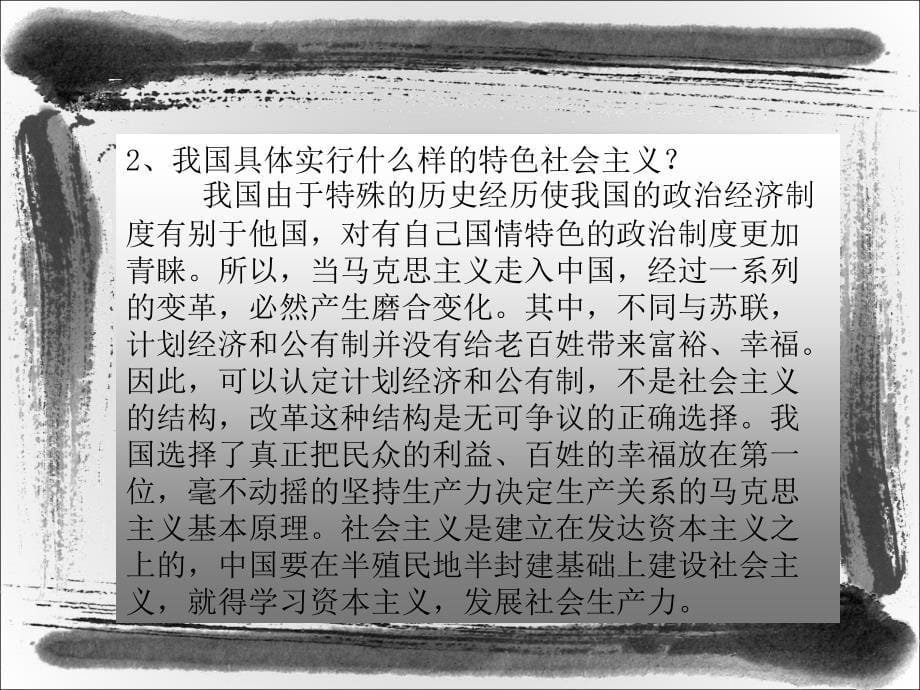 2、我国具体实行什么样的特色社会主义？
我国由于特殊的历史经历使我国的政治经济制
度有别于他国，对有自己国情特色的政治制度更加
青睐。所以，当马克思主义走入中国，经过一系列
的变革，必然产生磨合变化。其中，不同与苏联，
计划经济和公有制并没有给老百姓带来富裕、幸福。
因此，可以认定计划经济和公有制，不是社会主义
的结构，改革这种结构是无可争议的正确选择。我
国选择了真正把民众的利益、百姓的幸福放在第一
位，毫不动摇的坚持生产力决定生产关系的马克思
主义基本原理。社会主义是建立在发达资本主义之
上的，中国要在半殖民地半封建基础上建设社会主
义，就得学习资本主义，发展社会生产力。